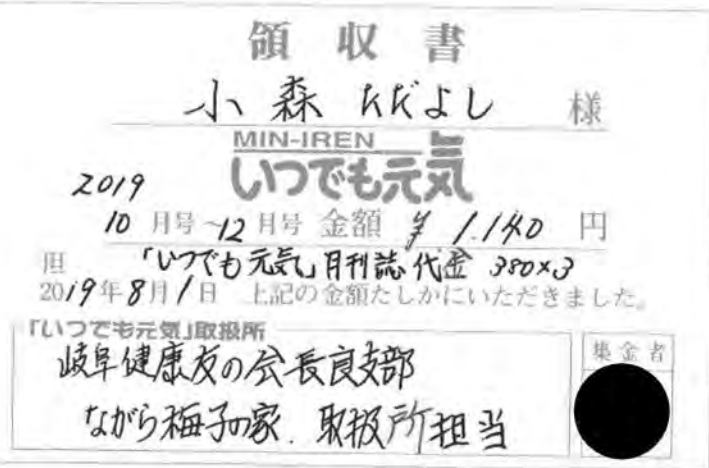 領収書
小森 ただよし 様
MIN-IREN
いつでも元気
2019
10月号〜12月号 金額 ¥ 1.140 円
但 「いつでも元気」月刊誌代金 380×3
2019年8月1日 上記の金額たしかにいただきました。
「いつでも元気」取扱所
岐阜健康友の会長良支部
ながら梅子の家. 取扱所担当
集金者